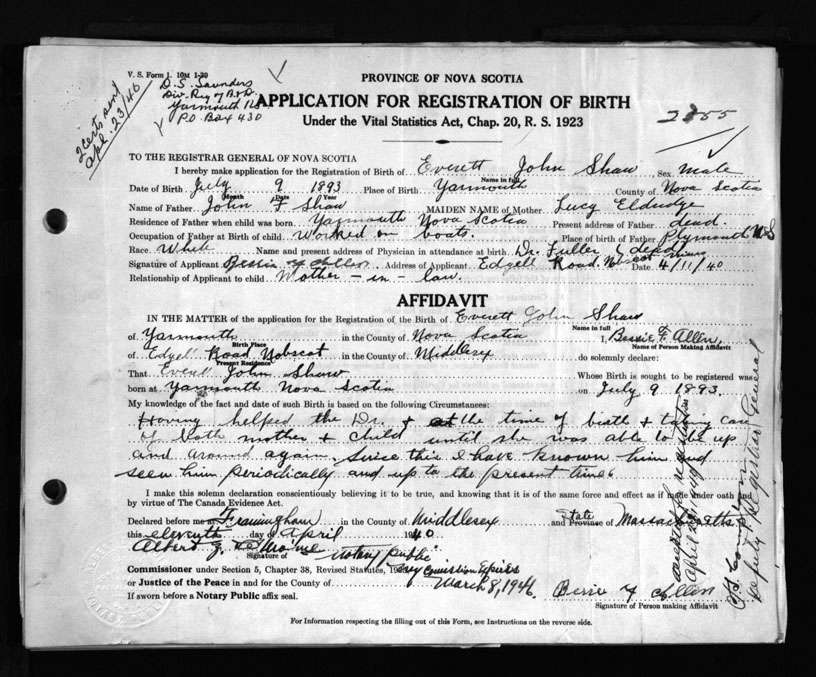 V. S. Form 1. 10M 1-39
D. S. Saunders
Div. Reg of B & D
Yarmouth N.S
P.O. Box 430
2 certs sent
apl. 23/40
PROVINCE OF NOVA SCOTIA
APPLICATION FOR REGISTRATION OF BIRTH
Under the Vital Statistics Act, Chap. 20, R. S. 1923
TO THE REGISTRAR GENERAL OF NOVA SCOTIA
I hereby make application for the Registration of Birth of Everett John Shaw, Sex male
Name in full
Date of Birth July 9 1893 Place of Birth Yarmouth County of Nova Scotia
Month Date Year
Name of Father John F Shaw MAIDEN NAME of Mother Lucy Eldridge
Residence of Father when child was born Yarmouth Nova Scotia Present address of Father dead
Occupation of Father at Birth of child Worked on boats. Place of birth of Father Plymouth N S
Race White Name and present address of Physician in attendance at birth Dr. Fuller dead
Signature of Applicant Bessie F Allen Address of Applicant Edgell Road Nobscot Mass Date 4/11/40
Relationship of Applicant to child Mother-in-law.
AFFIDAVIT
IN THE MATTER of the application for the Registration of the Birth of Everett John Shaw
Name in full
of Yarmouth in the County of Nova Scotia I, Bessie F. Allen,
Birth Place
Name of Person Making Affidavit
of Edgell Road Nobscot in the County of Middlesex do solemnly declare:
Present Residence
That Everett John Shaw Whose Birth is sought to be registered was
born at Yarmouth Nova Scotia on July 9 1893.
My knowledge of the fact and date of such Birth is based on the following Circumstances:
Having helped the Dr. & at the time of birth & taking care
of both mother & child until she was able to be up
and around again. Since this I have known him and
seen him periodically and up to the present time.
I make this solemn declaration conscientiously believing it to be true, and knowing that it is of the same force and effect as if made under oath and
by virtue of The Canada Evidence Act.
Declared before me at Framingham in the County of Middlesex State and Province of Massachusetts
this eleventh day of April 1940
Albert J. notary public
Signature of
Commissioner under Section 5, Chapter 38, Revised Statutes, 19 My Commission Expires
or Justice of the Peace in and for the County of March 8, 1946.
If sworn before a Notary Public affix seal.
Bessie F Allen
Signature of Person making Affidavit
For Information respecting the filling out of this Form, see Instructions on the reverse.
accepted for registration
Deputy Registrar General